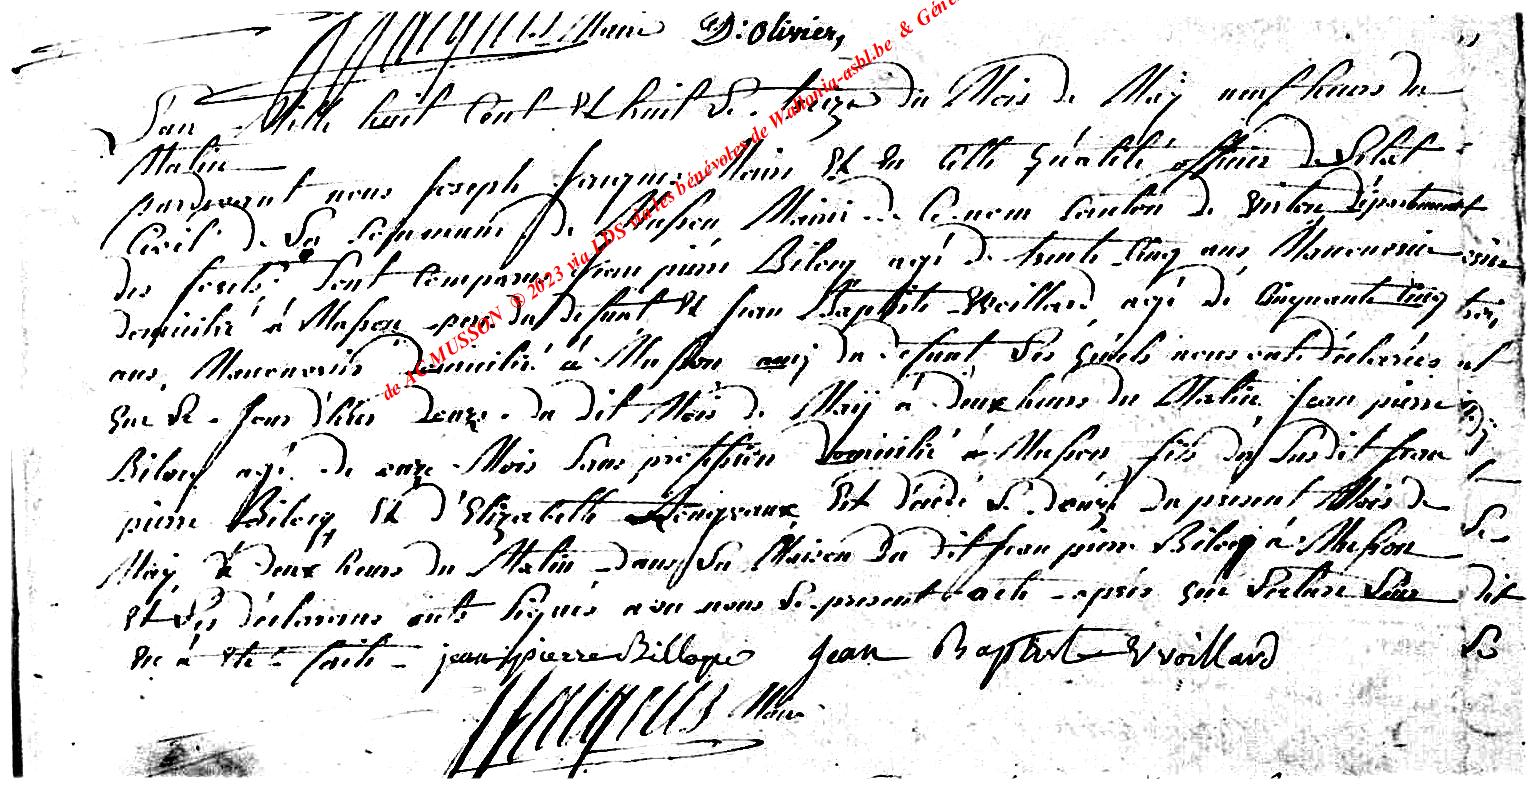 Maire D: olivier,
L'an Mille huit Cent et huit Le treize du Mois de Maÿ neuf heures du
Matin
pardevant nous Joseph Jacques Maire et en Cette qualité officier de L'etat
Civil de La Commune de Musson Mairie de Ce nom Canton de Virton département
des forets Sont Comparus Jean pierre Bilocq agé de trente Cinq ans Manoeuvrie
domicilié á Musson pere du defunt et Jean Baptiste Weillard agé de Cinquante Cinq
ans, Manoeuvrie domicilié á Musson amj du defunt Les quels nous ont déclarés
que Le Jour d'hier douze du dit Mois de Maÿ á deux heures du Matin Jean pierre
Bilocq agé de onze Mois Sans profession domicilié á Musson fils du Susdit Jean
pierre Bilocq et d'Elizabette est décédé Le douze du present Mois de
Maÿ á deux heures du Matin dans La Maison du dit Jean pierre Bilocq á Musson
et Les déclarans onts signés avec nous Le present acte après que Lecture Leur
en á eté faite jean pierre Billoque Jean Baptist Woillard
Jacques Maire
de ACMUSSON © 2023 via LDS via les bénévoles de Wallonia-asbl.be & Géné
dit